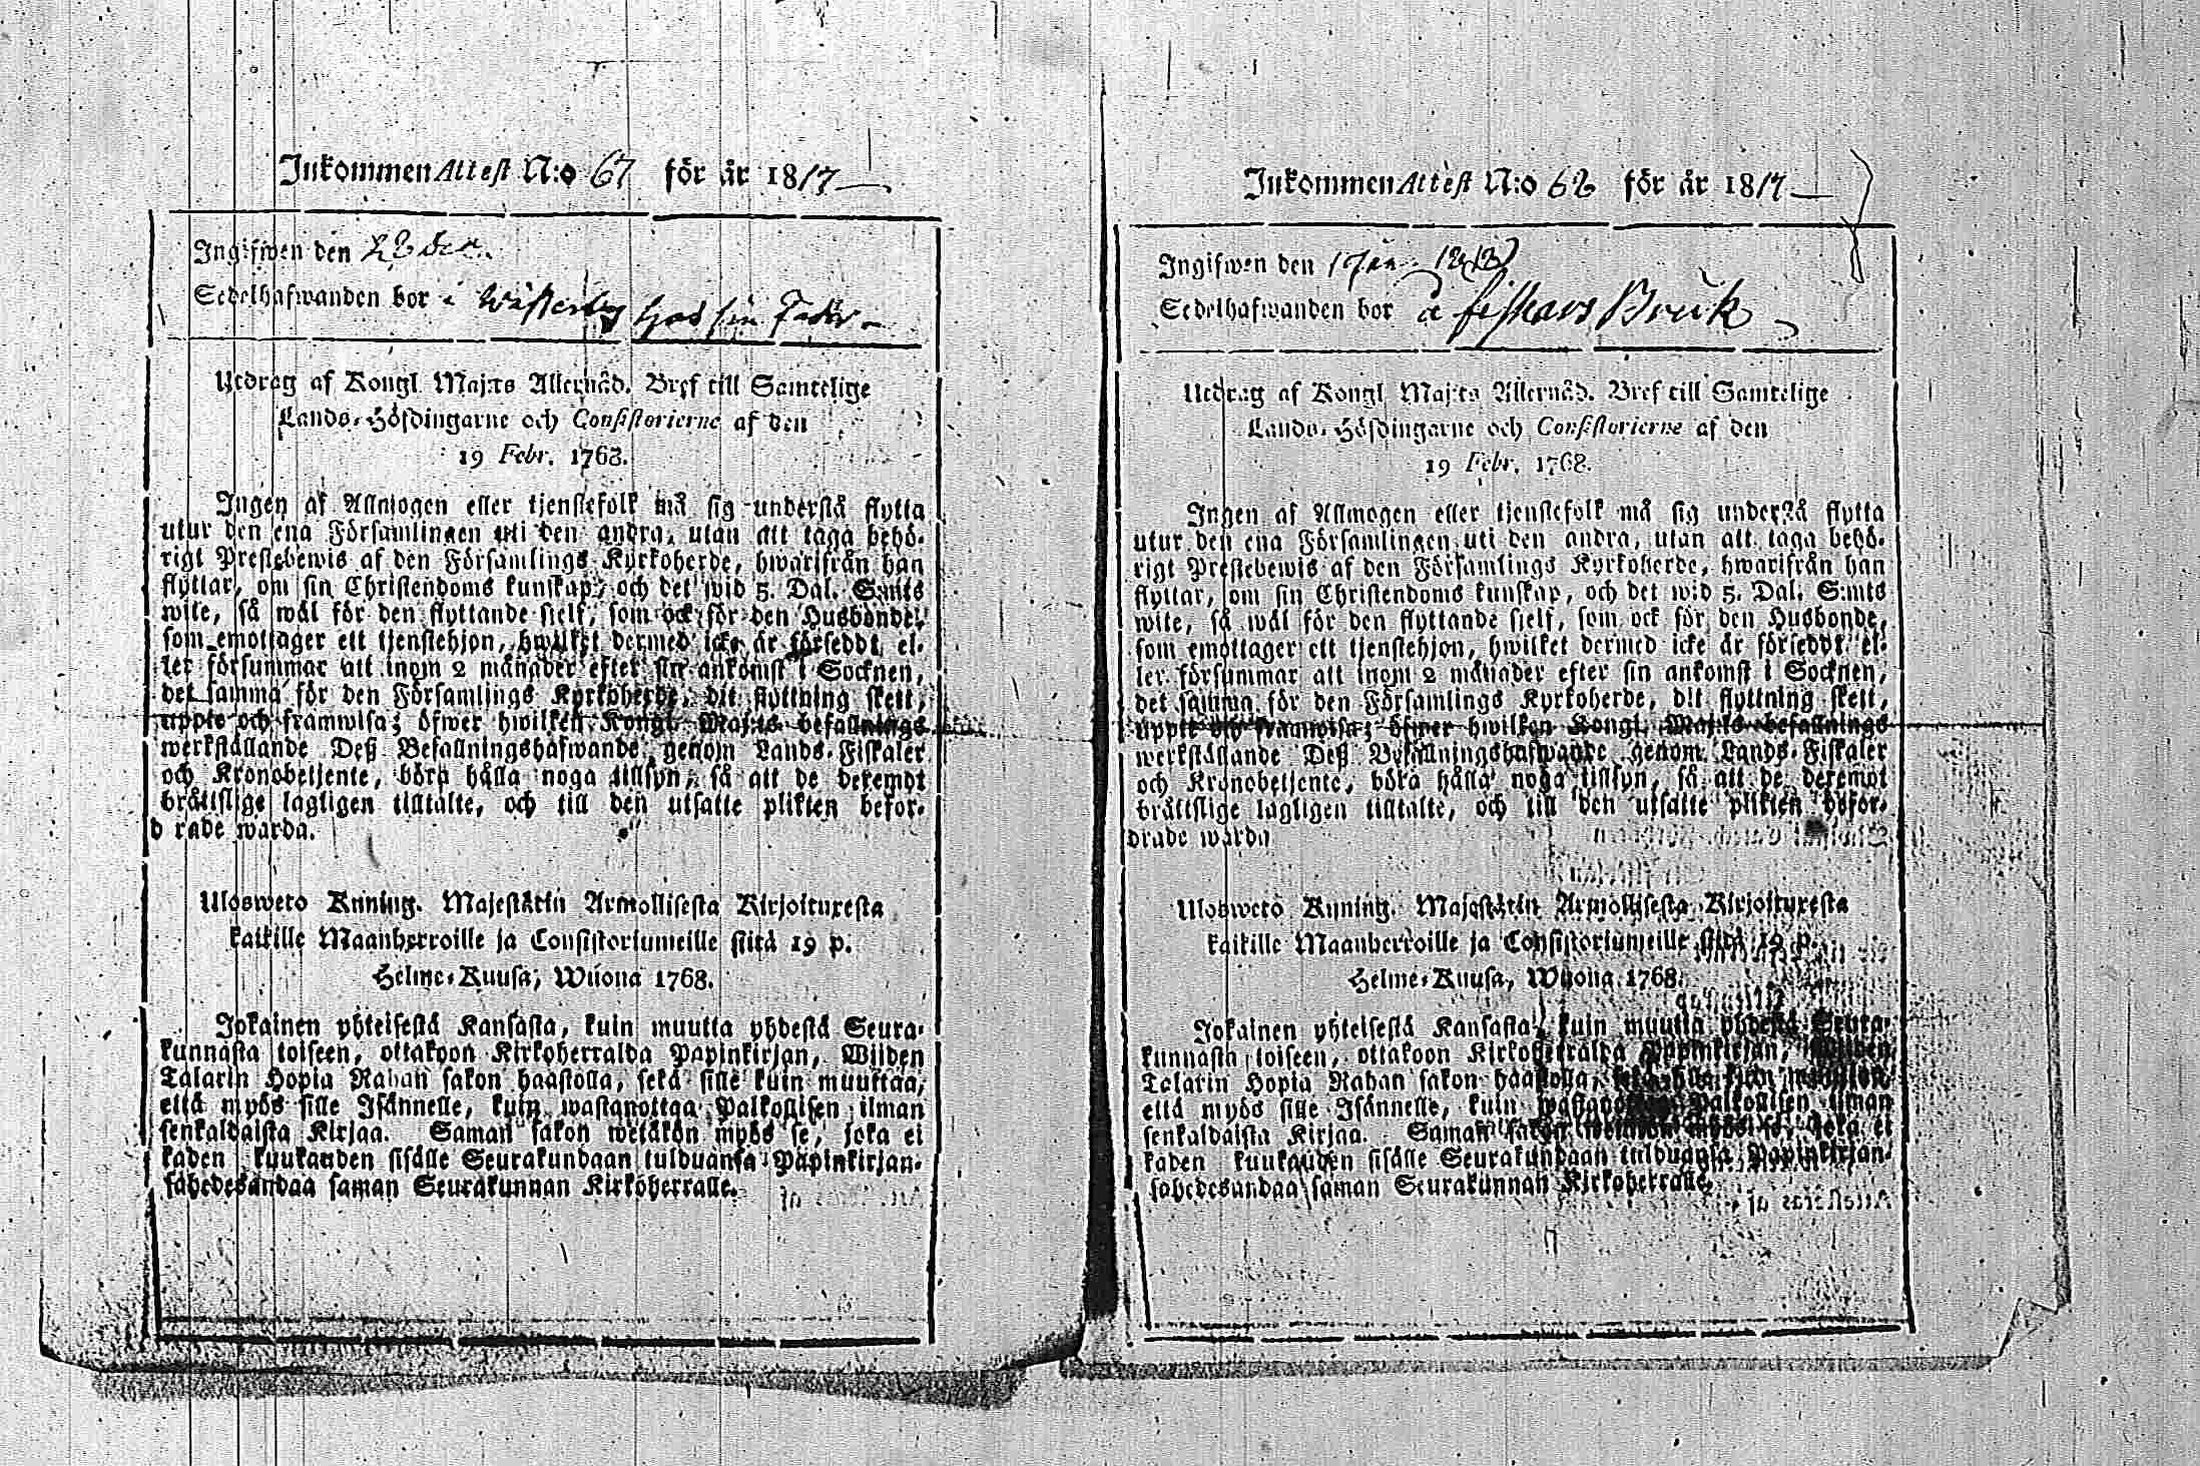 Inkommen Attest N:o 67 för år 1817
Ingifwen den 28 Dec.
Sedelhafwanden bor i Westerby hos sin Fader
Utdrag af Kongl. Maj:ts Allernåd. Bref till Samtelige
Lands-Höfdingarne och Consistorierne af den
19 Febr. 1768.
Ingen af Allmogen eller tjenstefolk må sig understå flytta
utur den ena Församlingen uti den andra, utan att taga behö-
rigt Prestebewis af den Församlings Kyrkoherde, hwarifrån han
flyttar, om sin Christendoms kunskap, och det wid 5. Dal. S:mts
wite, så wäl för den flyttande sjelf, som ock för den Husbonde,
som emottager ett tjenstehjon, hwilket dermed icke är förseddt, el-
ler försummar att inom 2 månader efter sin ankomst i Socknen,
det samma för den Församlings Kyrkoherde, dit flyttning skett,
uppte och framwisa; öfwer hwilken Kongl. Maj:ts befallnings
werkställande Deß Befallningshafwande, genom Lands-Fiskaler
och Kronobetjente, böra hålla noga tillsyn, så att de deremot
bråttslige lagligen tilltalte, och till den utsatte plikten befor-
drade warda.
Ulosweto Kuning. Majestätin Armollisesta Kirjoituxesta
kaikille Maanherroille ja Consistoriumeille siitä 19 p.
Helme-Kuusa, Wuona 1768.
Jokainen yhteisestä Kansasta, kuin muutta yhdestä Seura-
kunnasta toiseen, ottakoon Kirkoherralda Papinkirjan, Wiiden
Talarin Hopia Rahan sakon haastolla, sekä sille kuin muuttaa,
että myös sille Isännelle, kuin wastanottaa Palkollisen ilman
senkaldaista Kirjaa. Saman sakon wetäkön myös se, joka ei
kaden kuukauden sisälle Seurakundaan tulduansa Papinkirjan-
sahedesandaa saman Seurakunnan Kirkoherralle.
Inkommen Attest N:o 68 för år 1817
Ingifwen den 1 Jan. 1818
Sedelhafwanden bor å fiskars Bruk
Utdrag af Kongl Maj:ts Allernåd. Bref till Samtelige
Lands-Höfdingarne och Consistorierne af den
19 Febr. 1768.
Ingen af Allmogen eller tjenstefolk må sig understå flytta
utur den ena Församlingen uti den andra, utan att taga behö-
rigt Prestebewis af den Församlings Kyrkoherde, hwarifrån han
flyttar, om sin Christendoms kunskap, och det wid 5. Dal. S:mts
wite, så wäl för den flyttande sjelf, som ock för den Husbonde,
som emottager ett tjenstehjon, hwilket dermed icke är förseddt, el-
ler försummar att inom 2 månader efter sin ankomst i Socknen,
det samma för den Församlings Kyrkoherde, dit flyttning skett,
uppte och framwisa; öfwer hwilken Kongl. Maj:ts befallnings
werkställande Deß Befallningshafwande genom Lands-Fiskaler
och Kronobetjente, böra hålla noga tillsyn, så att de deremot
bråttslige lagligen tilltalte, och till den utsatte plikten befor-
drade warda
Ulosweto Kuning. Majestätin Armollisesta Kirjoituxesta
kaikille Maanherroille ja Consistoriumeille siitä 19 p.
Helme-Kuusa, Wuona 1768.
Jokainen yhteisestä Kansasta, kuin muutta yhdestä Seura-
kunnasta toiseen, ottakoon Kirkoherralda Papinkirjan, Wiiden
Talarin Hopia Rahan sakon haastolla, sekä sille kuin muuttaa,
että myös sille Isännelle, kuin wastanottaa Palkollisen ilman
senkaldaista Kirjaa. Saman sakon wetäkön myös se, joka ei
kaden kuukauden sisälle Seurakundaan tulduansa Papinkirjan-
sahedesandaa saman Seurakunnan Kirkoherralle.